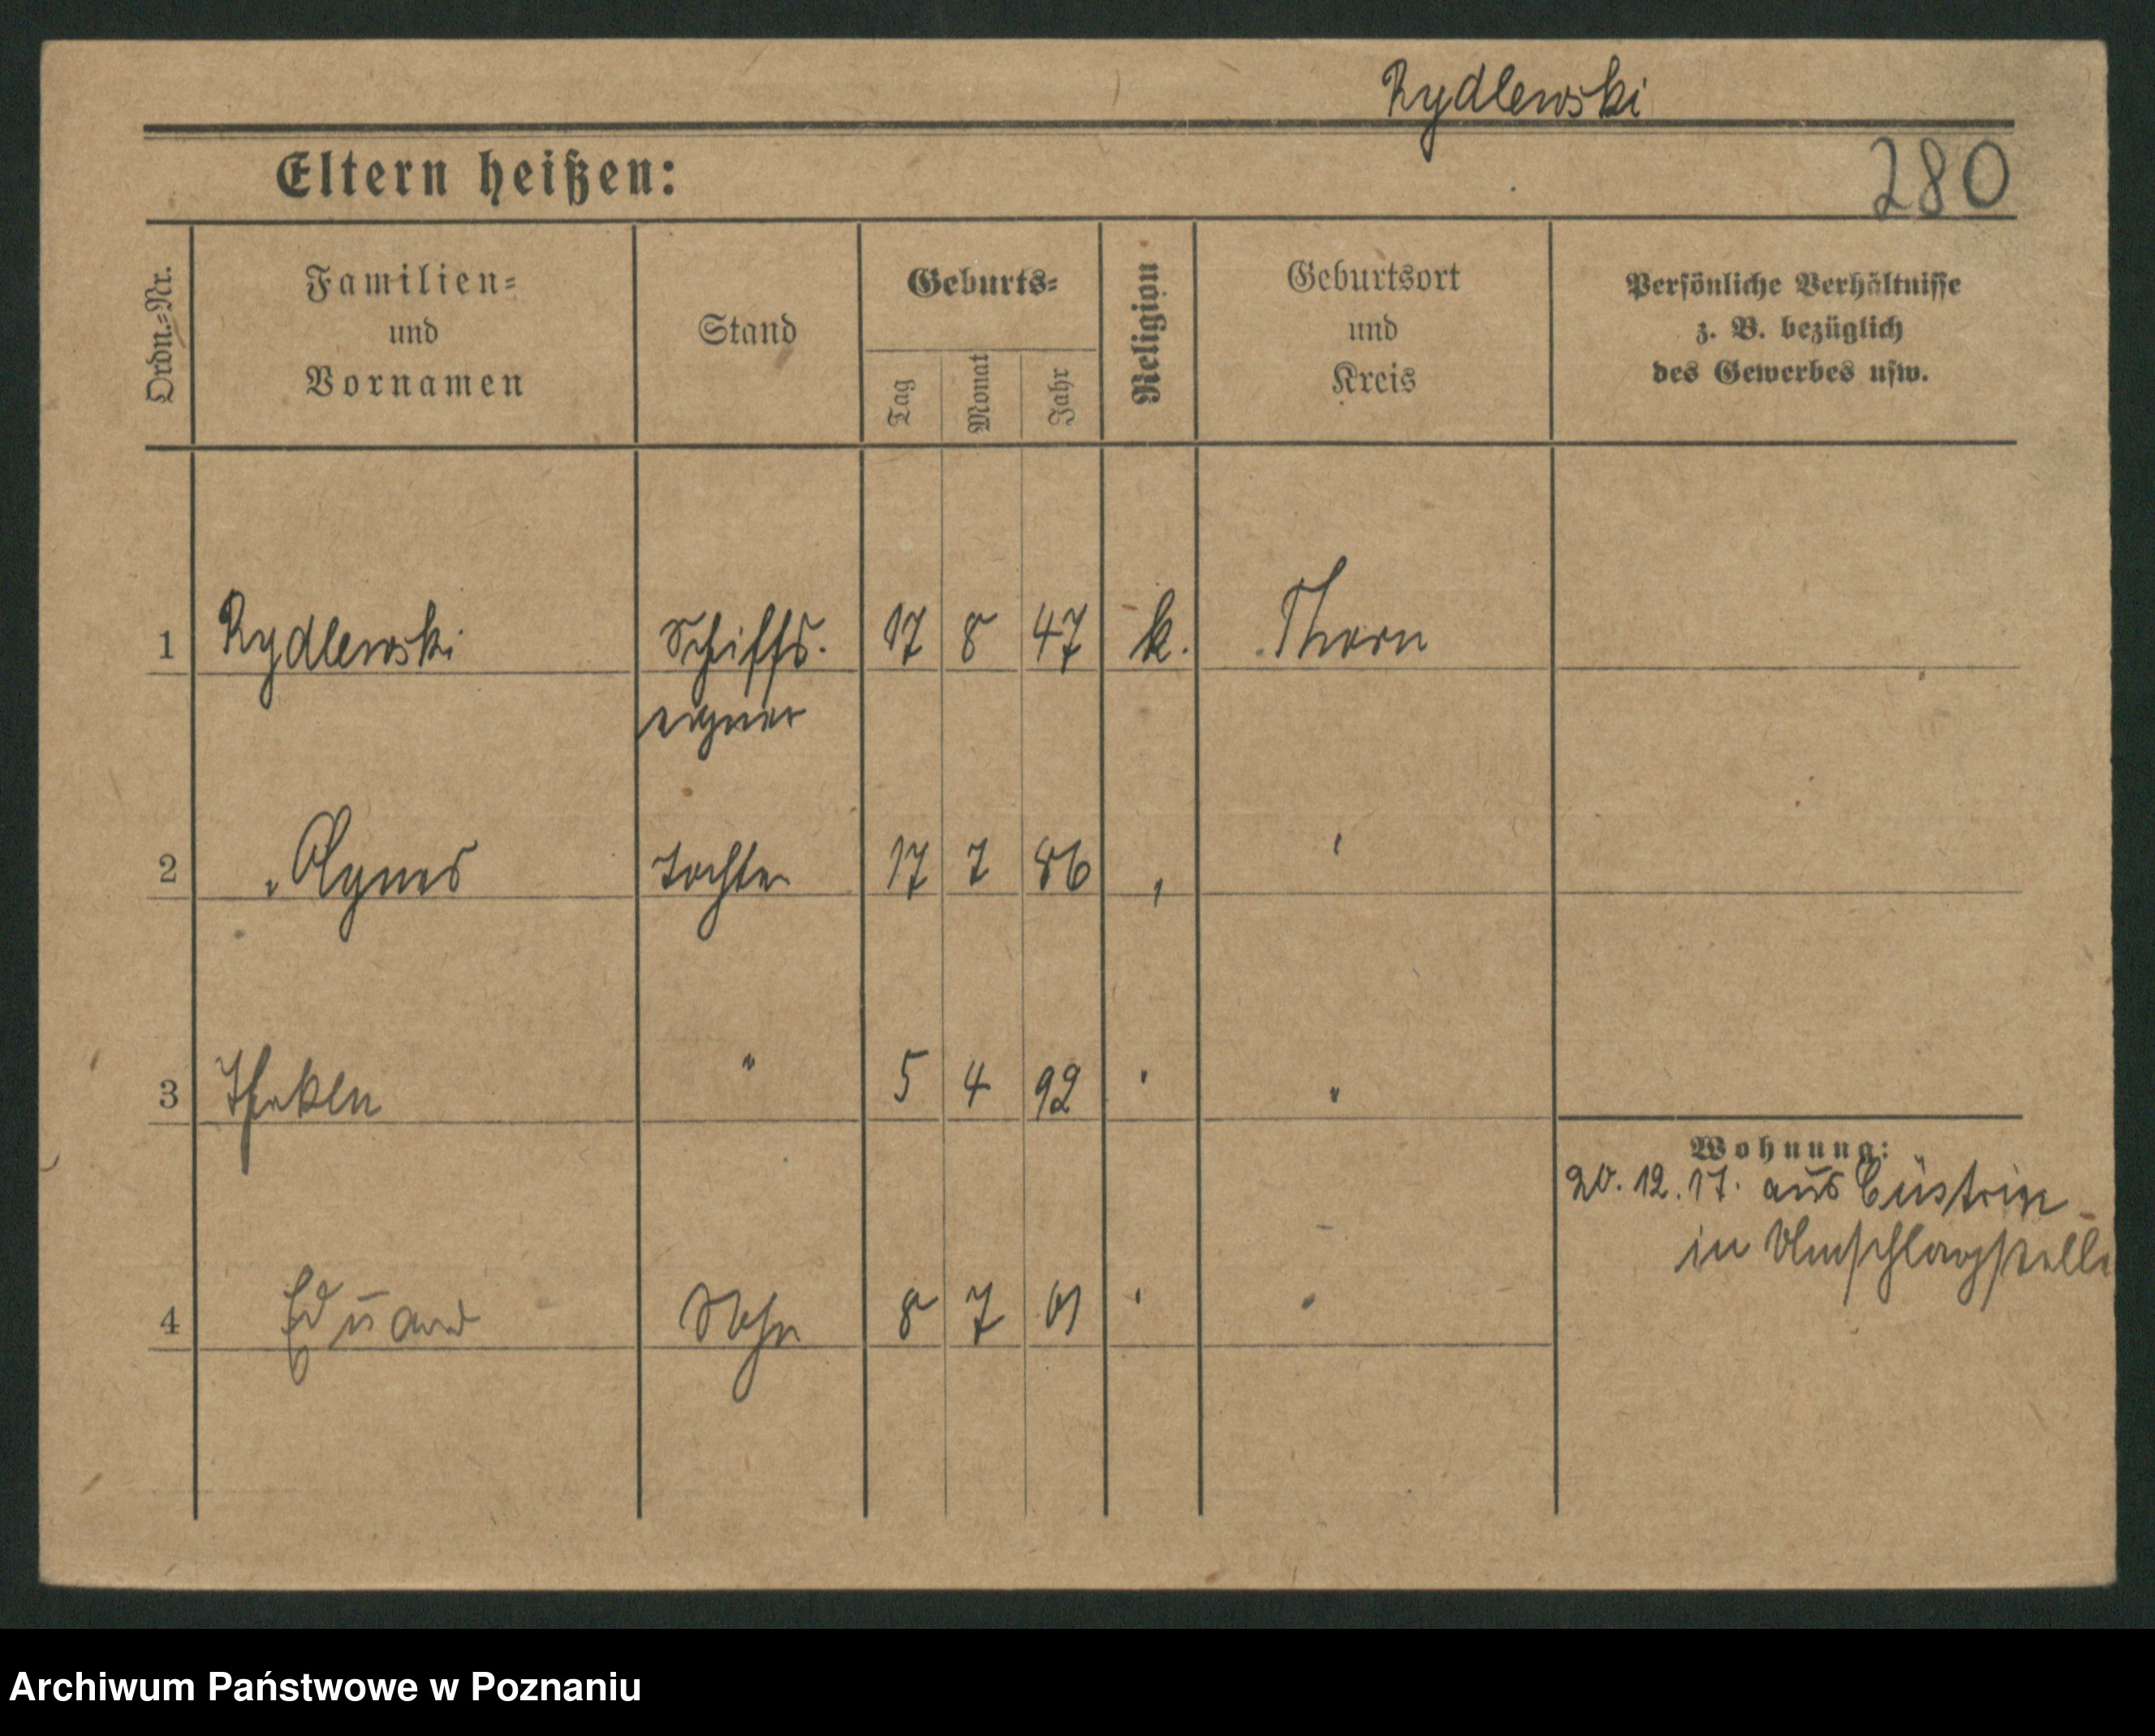 Rydlewski
Eltern heißen:
280
Ordn.=Nr.
Familien=
und
Vornamen
Stand
Geburts=
Tag
Monat
Jahr
Religion
Geburtsort
und
Kreis
Persönliche Verhältnisse
z. B. bezüglich
des Gewerbes usw.
1 Rydlewski Schiffs. 17 8 47 k. Thorn
eigner
2 " Agnes Tochter 17 7 86 " "
3 Thekla " 5 4 92 " "
Wohnung:
20. 12. 17. aus Cüstrin
in Umschlagstelle
4 Eduard Sohn 8 7 01 " "
Archiwum Państwowe w Poznaniu